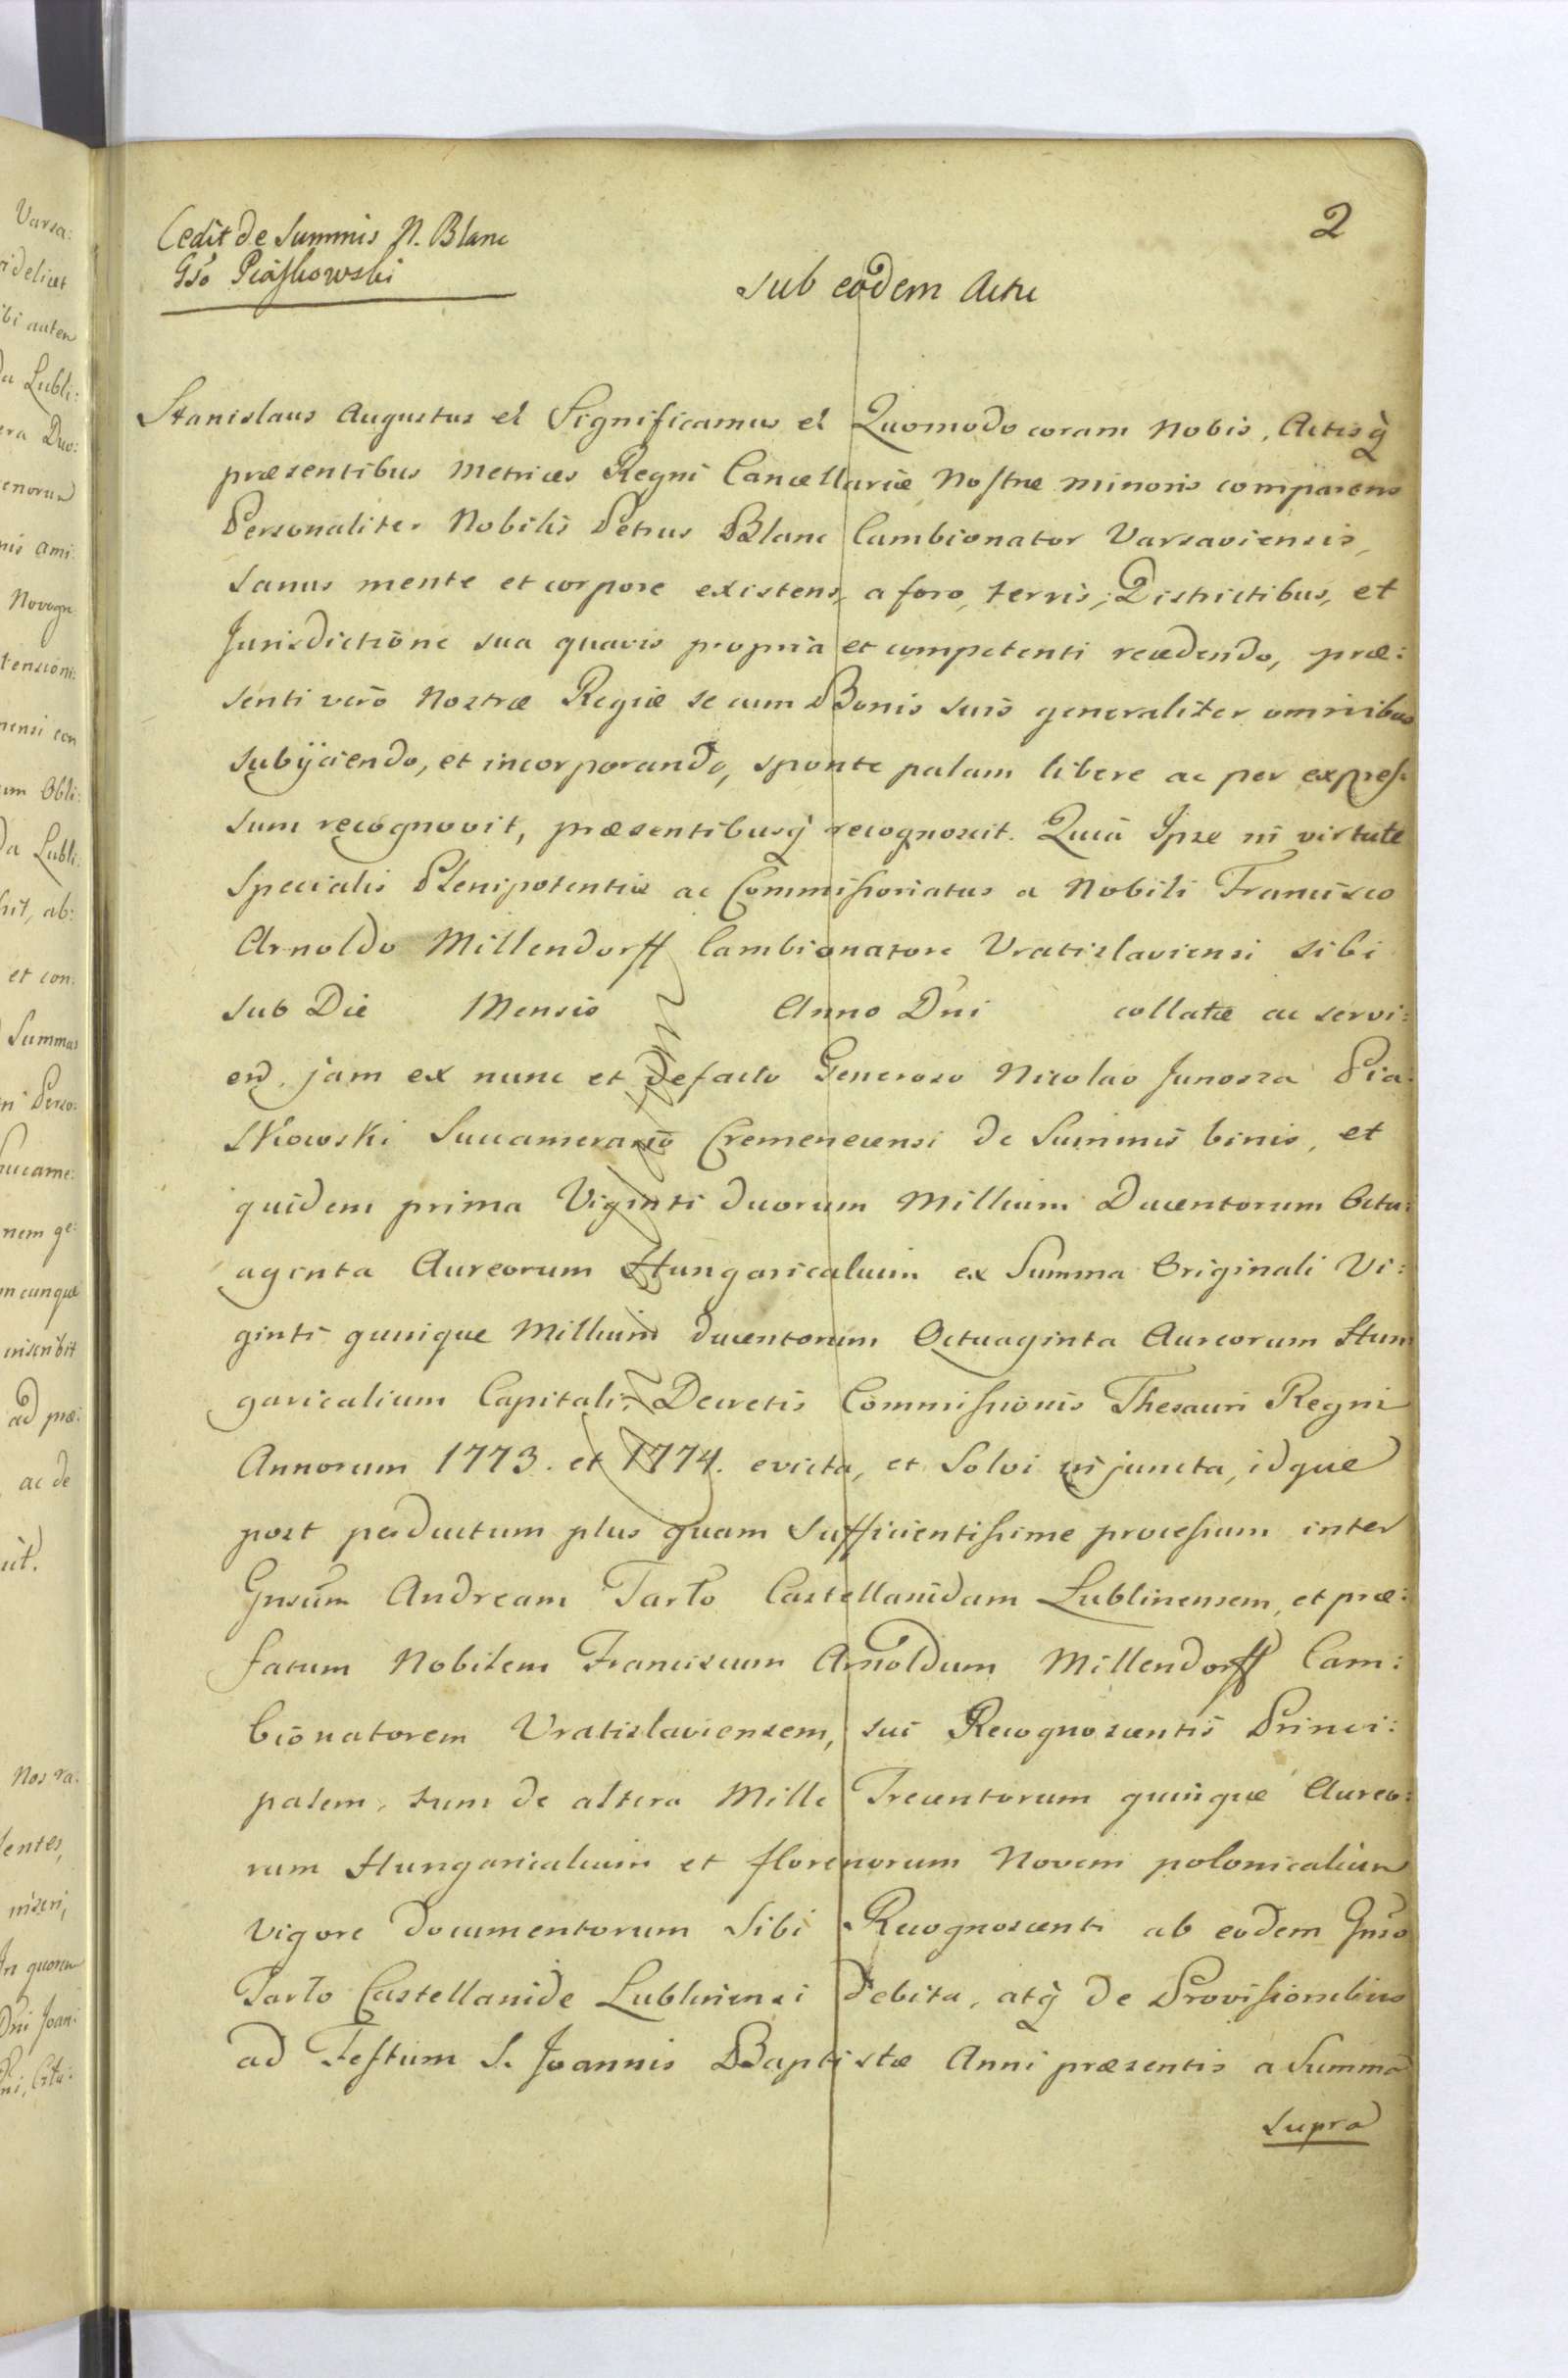 2
Cedit de Summis N. Blanc
Gso Piaskowski
sub eodem Actu
Stanislaus Augustus et Significamus et Quomodo coram Nobis, Actisq́
præsentibus Metrices Regni Cancellariæ Nostræ minoris comparens
Personaliter Nobilis Petrus Blanc Cambionator Varsaviensis,
sanus mente et corpore existens, a foro, terris, Districtibus, et
Jurisdictione sua quavis propria et competenti recedendo, præ:
senti vero Nostræ Regiæ se cum Bonis suis generaliter omnibus
subijciendo, et incorporando, sponte palam libere ac per expres:
sum recognovit, præsentibusq́ recognoscit. Quia Ipse in virtute
Specialis Plenipotentiæ ac Commissoriatus a Nobili Francisco
Arnoldo Millendorff Cambionatore Vratislaviensi sibi
sub Die Mensis Anno Dni collatæ ac servi:
en. jam ex nunc et defacto Generoso Nicolao Junosza Pia:
skowski Succamerario Cremenecensi de Summis binis, et
quidem prima Viginti duorum Millium Ducentorum Octu:
aginta Aureorum Hungaricalium ex Summa Originali Vi:
ginti quinque Millium ducentorum Octuaginta Aureorum Hun
garicalium Capitali, Decretis Commissionis Thesauri Regni
Annorum 1773. et 1774. evicta, et Solvi injuncta, idque
post perductum plus quam sufficientissime processum inter
Gnsum Andream Tarło Castellanidam Lublinensem, et præ:
fatum Nobilem Franciscum Arnoldum Millendorff Cam:
bionatorem Vratislaviensem, sui Recognoscentis Princi:
palem, tum de altera Mille Trecentorum quinque Aureo:
rum Hungaricalium et florenorum Novem polonicalium
vigore documentorum Sibi Recognoscenti ab eodem Gnso
Tarło Castellanide Lublinensi debita, atq́ de Provisionibus
ad Festum S. Joannis Baptistæ Anni præsentis a Summa
supra